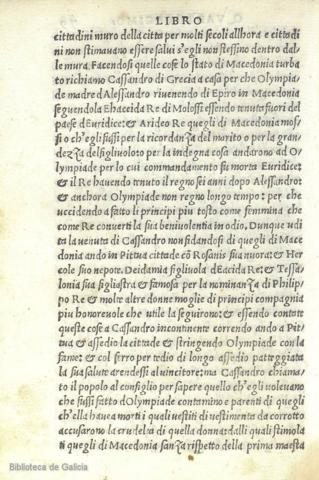 LIBRO
cittadini muro della citta per molti secoli allhora e cittadi
ni non stimavano essere salui s'egli non stessino dentro dal
le mura Facendosi quelle cose lo stato di Macedonia turba
to richiamo Cassandro di Grecia a casa per che Olympia
de madre d'Alessandro riuenendo di Epiro in Macedonia
seguendola Ehaceida Re di Molossi essendo tenuta fuori del
paese d'Euridice: & Arideo Re quegli di Macedonia mos/
si o ch'egli fussi per la ricordanza del marito o per la gran/
dezza del figliuolo: o per la indegna cosa andarono ad O/
lympiade per lo cui commandamento fu morta Euridice:
& il Re havendo tenuto il regno sei anni dopo Alessandro:
& anchora Olympiade non regno longo tempo: per che
uccidendo a fatto li principi piu tosto come femmina che
come Re converti la sua beniuolentia in odio. Dunque udi
ta la venuta di Cassandro non fidandosi di quegli di Mace
donia ando in Pittua cittade cō Rosanis sua nuora: & Her
cole suo nepote. Deidamia figliuola d'Eacida Re: & Tessa/
lonia sua figliastra & famosa per la nominanza di Philip/
po Re & molte altre donne moglie di principi compagnia
piu honorevole che utile la seguirono: & essendo contate
queste cose a Cassandro incontinente correndo ando a Pit
tua & assedio la cittade & stringendo Olympiade con la
fame: & col ferro per tedio di longo assedio patteggiata
la sua salute arrendessi al uincitore: ma Cassandro chiama/
to il popolo al configlio per sapere quello ch'egli uolevano
che fussi fatto d'Olympiade contamino e parenti di quegli
ch'ella havea morti i quali vestiti di vestimenta da corrotto
accusarono la crudelta di quella donna: dalli quali stimola
ti quegli di Macedonia sanza rispetto della prima maesta
Biblioteca de Galicia